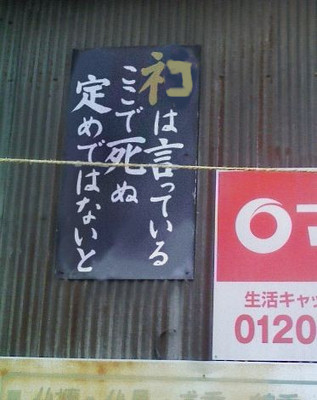 ネコは言っている
ここで死ぬ
定めではないと
生活キャッ
0120